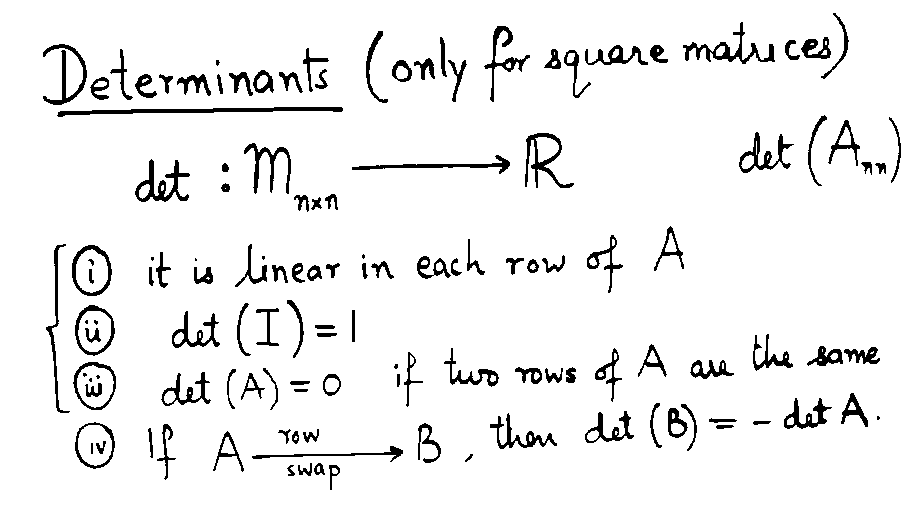 Determinants (only for square matrices)
det : M n×n ⟶ ℝ det (A nn)
(i) it is linear in each row of A
(ii) det (I) = 1
(iii) det (A) = 0 if two rows of A are the same
(iv) If A row swap ⟶ B, then det (B) = - det A.